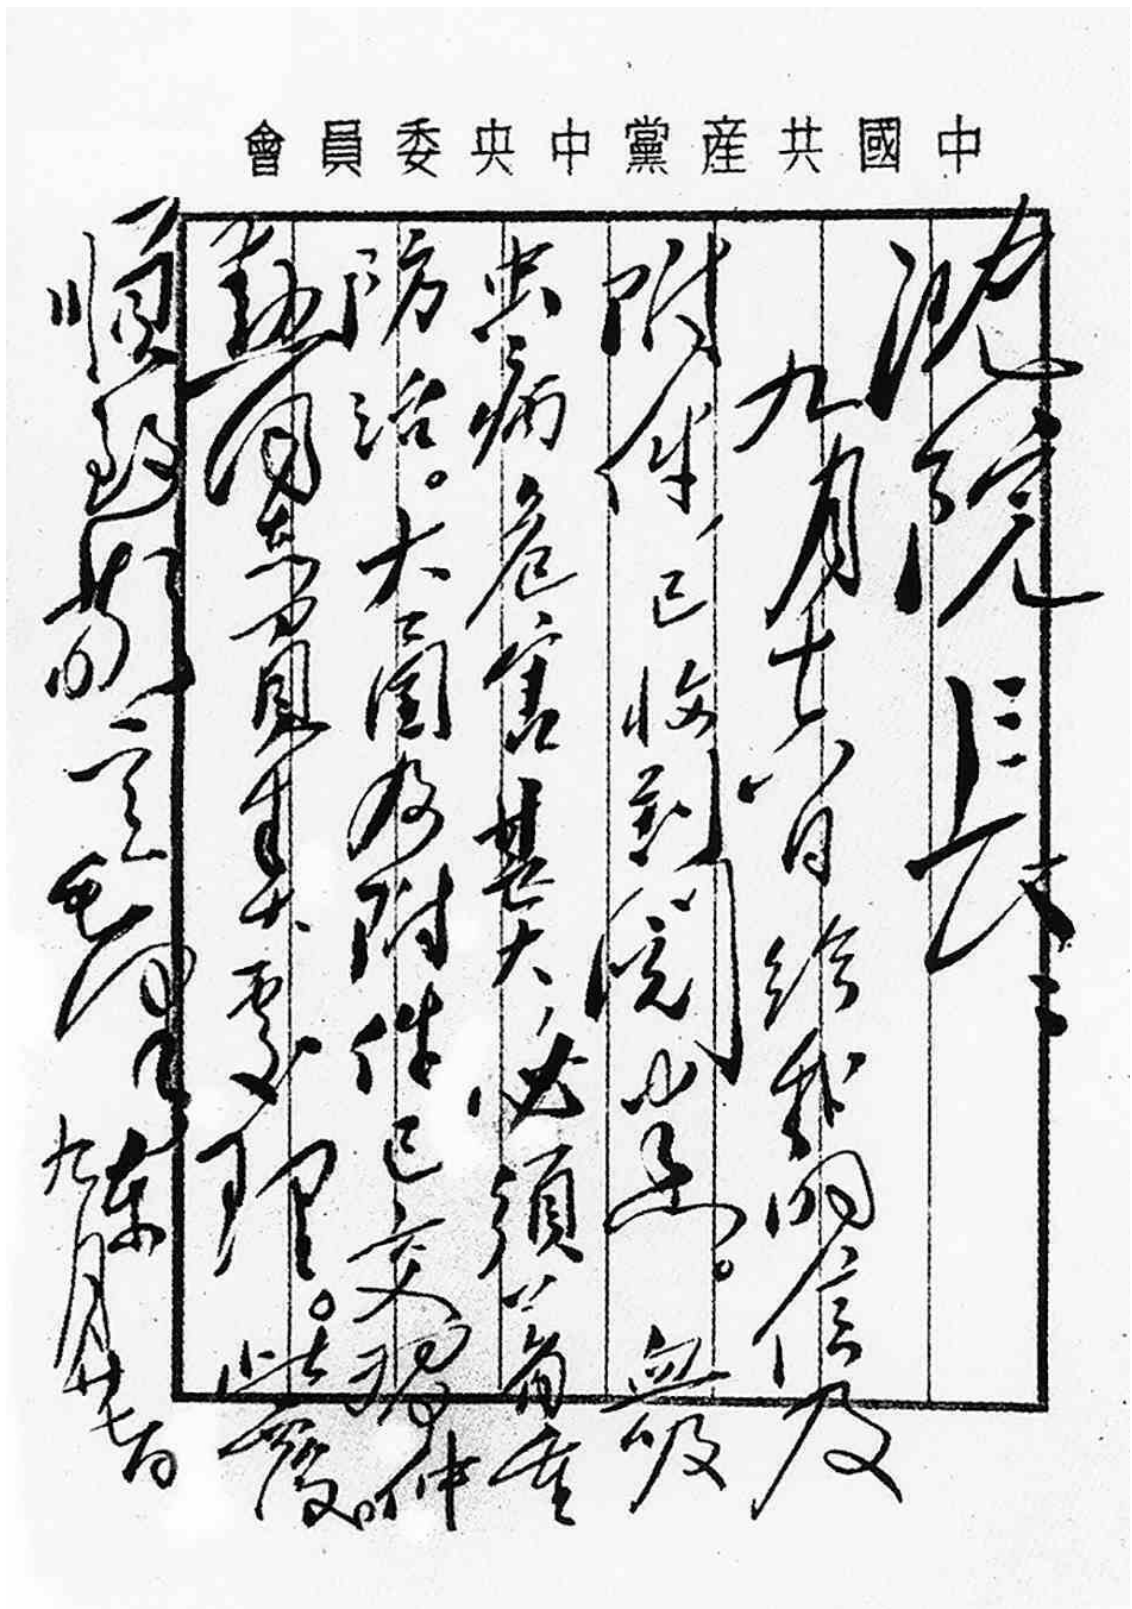 中國共産黨中央委員會
沈院長:
九月十六日給我的信及
附件,已收到閱悉。血吸
虫病危害甚大,必須着重
防治。大函及附件已交習仲
勳同志負責處理。此覆。
順致敬意 毛澤東
九月廿七日